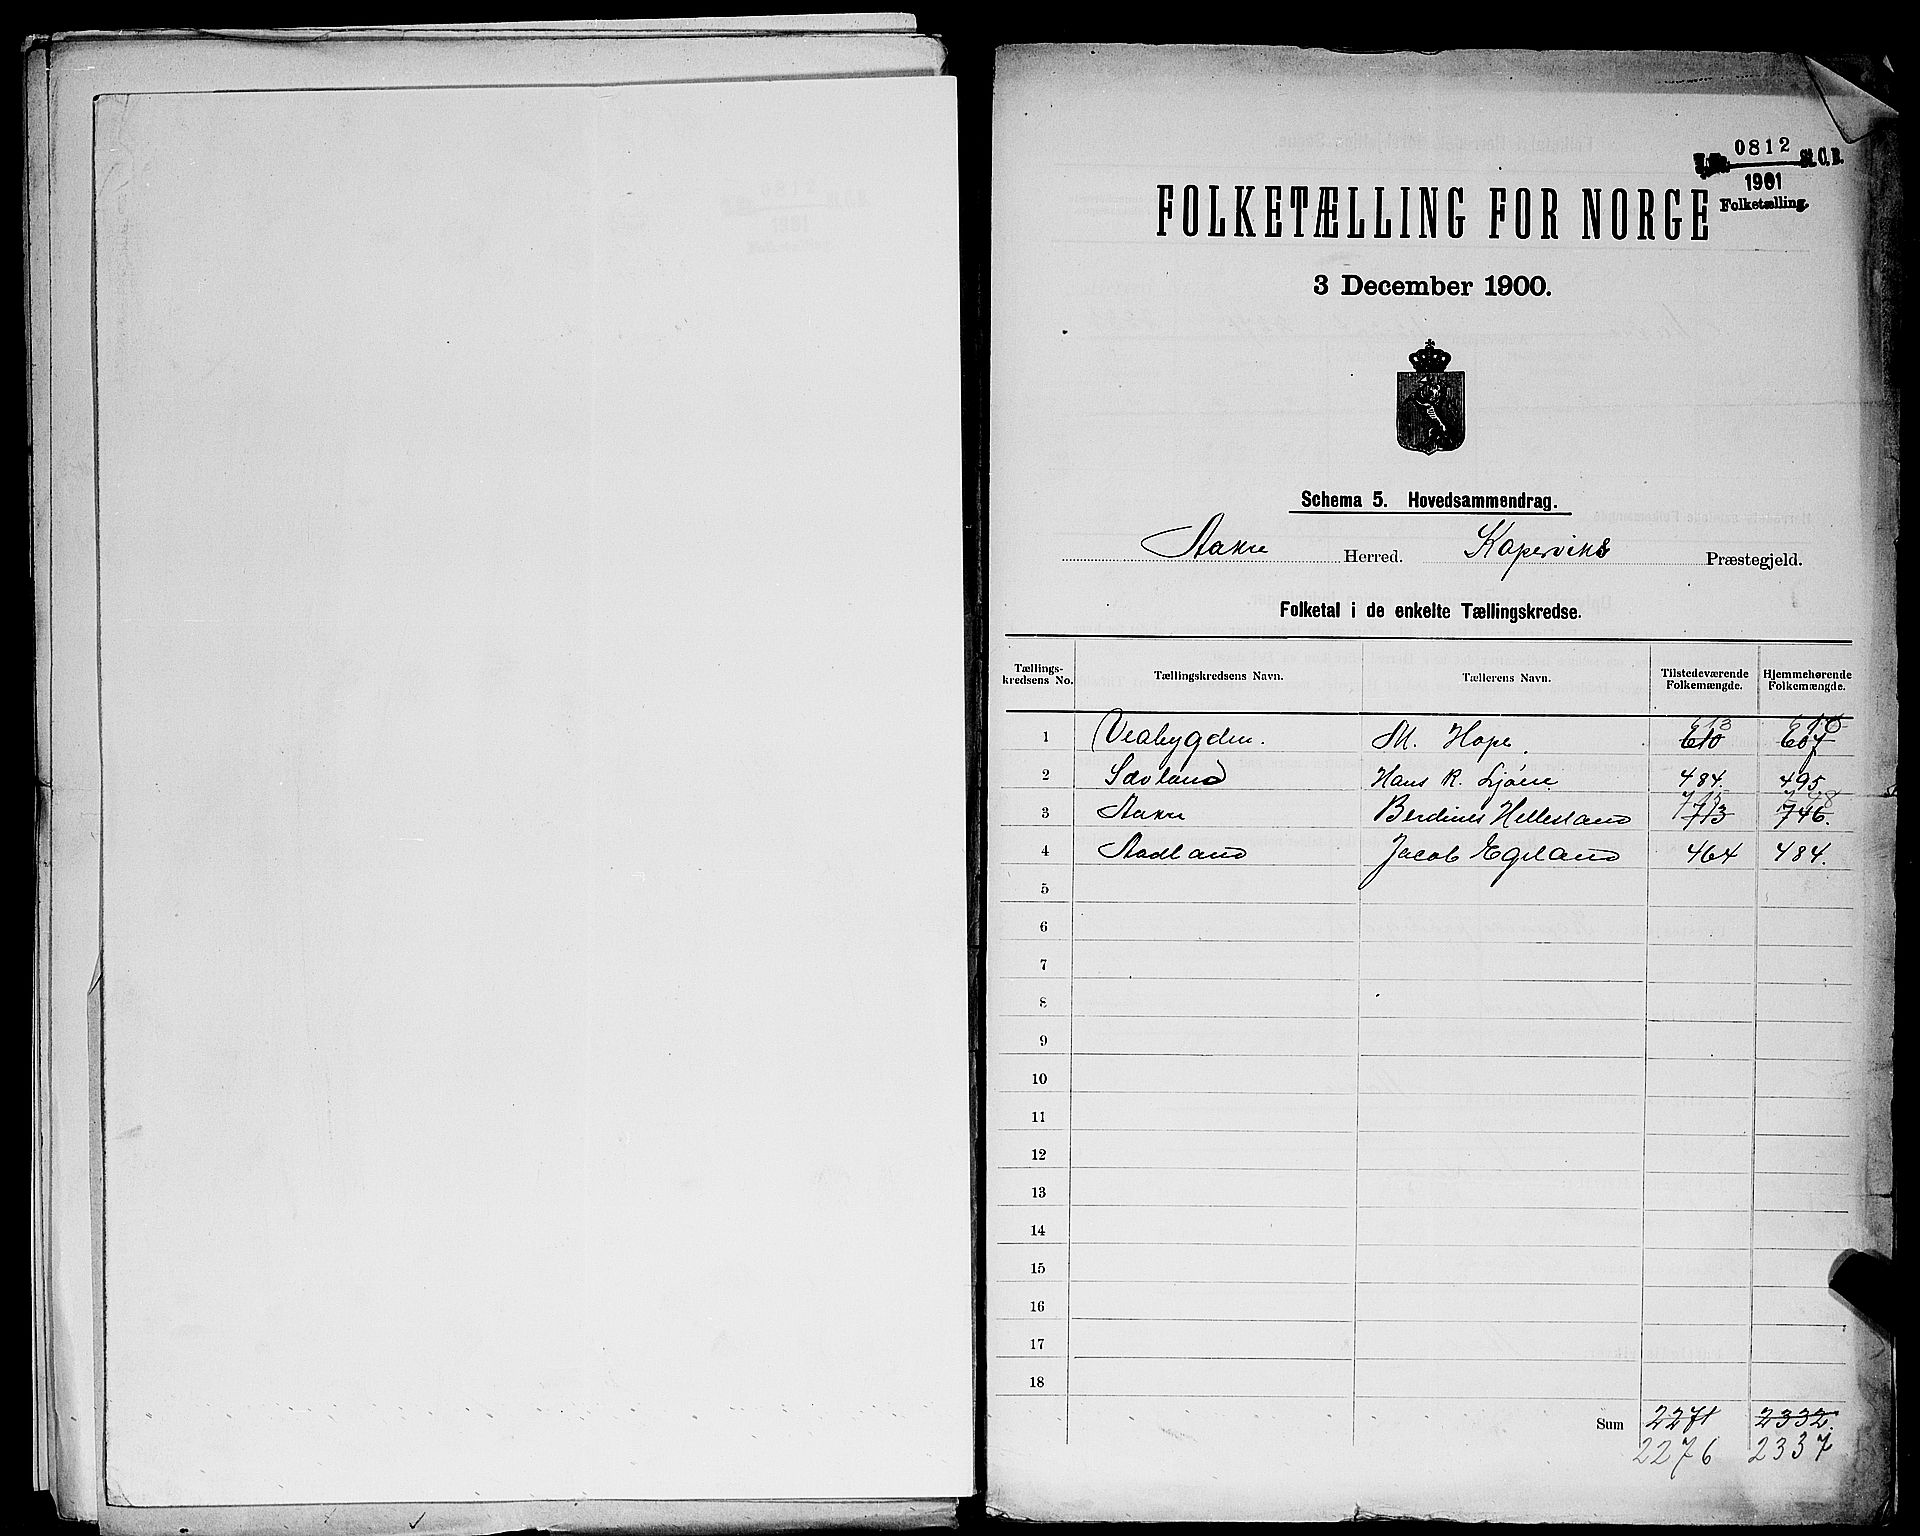 0812
J. No. St. C. B.
1901
Folketælling.
FOLKETÆLLING FOR NORGE
3 December 1900.
Schema 5. Hovedsammendrag.
Aakre Herred. Kopervik Præstegjeld.
Folketal i de enkelte Tællingskredse.
Tællings-kredsens No. Tællingskredsens Navn. Tællerens Navn. Tilstedeværende Folkemængde. Hjemmehørende Folkemængde.
613 610
1 Veabygden. M. Hope. 610 607
2 Sævland Hans R. Ljöne 484. 495
715 748
3 Aakre Berdines Hellesland 713 746.
4 Aadland Jacob Egeland 464 484.
5
6
7
8
9
10
11
12
13
14
15
16
17
18
Sum 2271 2332.
2276 2337